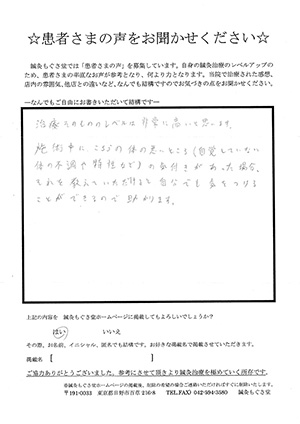 ☆患者さまの声をお聞かせください☆
鍼灸もぐさ堂では「患者さまの声」を募集しています。自身の鍼灸治療のレベルアップの
ため、患者さまの率直なお声が参考となり、何より力となります。当院で治療された感想、
店内の雰囲気、他店との違いなど、なんでも結構ですのでお気づきの点をお聞かせください。
―なんでもご自由にお書きいただいて結構です―
治療そのもののレベルは非常に高いと思います。
施術中に、こちらの体の悪いところ(自覚していない
体の不調や特徴など)の気付きがあった場合、
それを教えていただけると自分でも気をつける
ことができるので助かります。
上記の内容を 鍼灸もぐさ堂ホームページに掲載してもよろしいでしょうか?
はい いいえ
その際、お名前、イニシャル、匿名でも結構です。お好きな掲載名で掲載させていただきます。
掲載名 [ ]
ご協力ありがとうございました。参考にさせて頂きより鍼灸治療を極めていく所存です。
※鍼灸もぐさ堂ホームページの掲載後、削除の希望の場合ご連絡いただければすぐに削除いたします。
〒191-0033 東京都日野市百草 216-8 TEL(FAX) 042-594-3580 鍼灸もぐさ堂